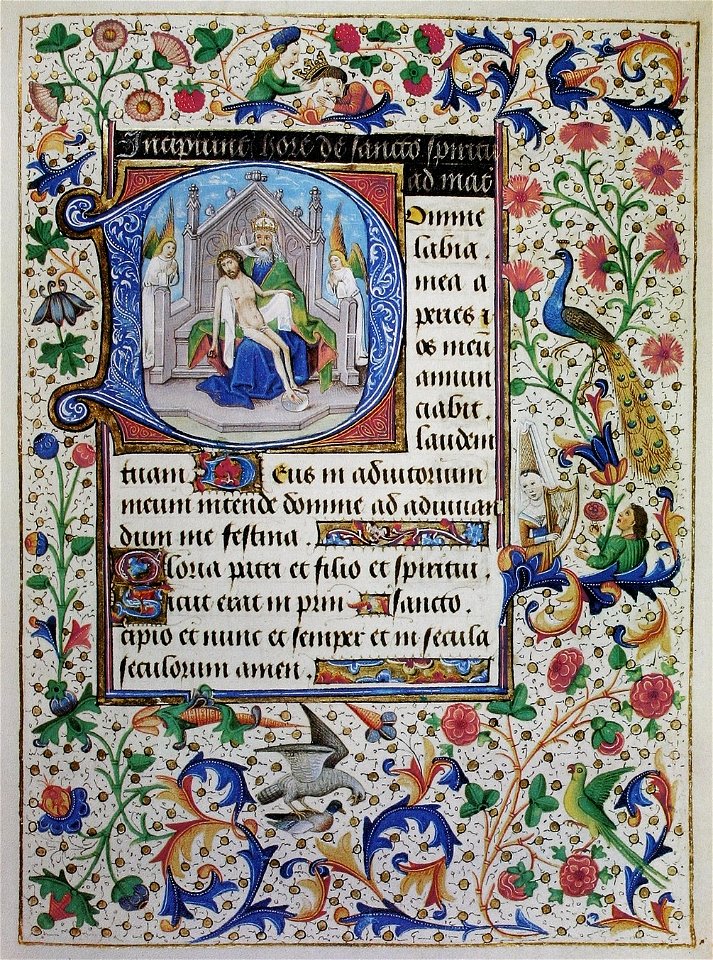 Incipiunt hore de sancto spiritu
ad mat
Domine
labia .
mea a
peries ⁊
os meū
annun
ciabit .
laudem
tuam Deus in adiutorium
meum intende domine ad adiuuan
dum me festina .
Gloria patri et filio et spiritui .
Sicut erat in prin sancto .
cipio et nunc et semper et in secula
seculorum amen .